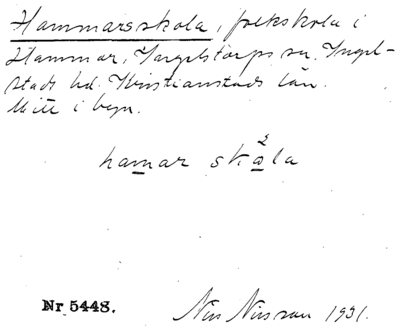 Hammarsskola, folkskola i
Hammar, Ingelstorps sn. Ingel-
stads hd. Kristianstads län.
Mitt i byn.
hamar skåla
Nr 5448.
Nils Nilsson 1931.